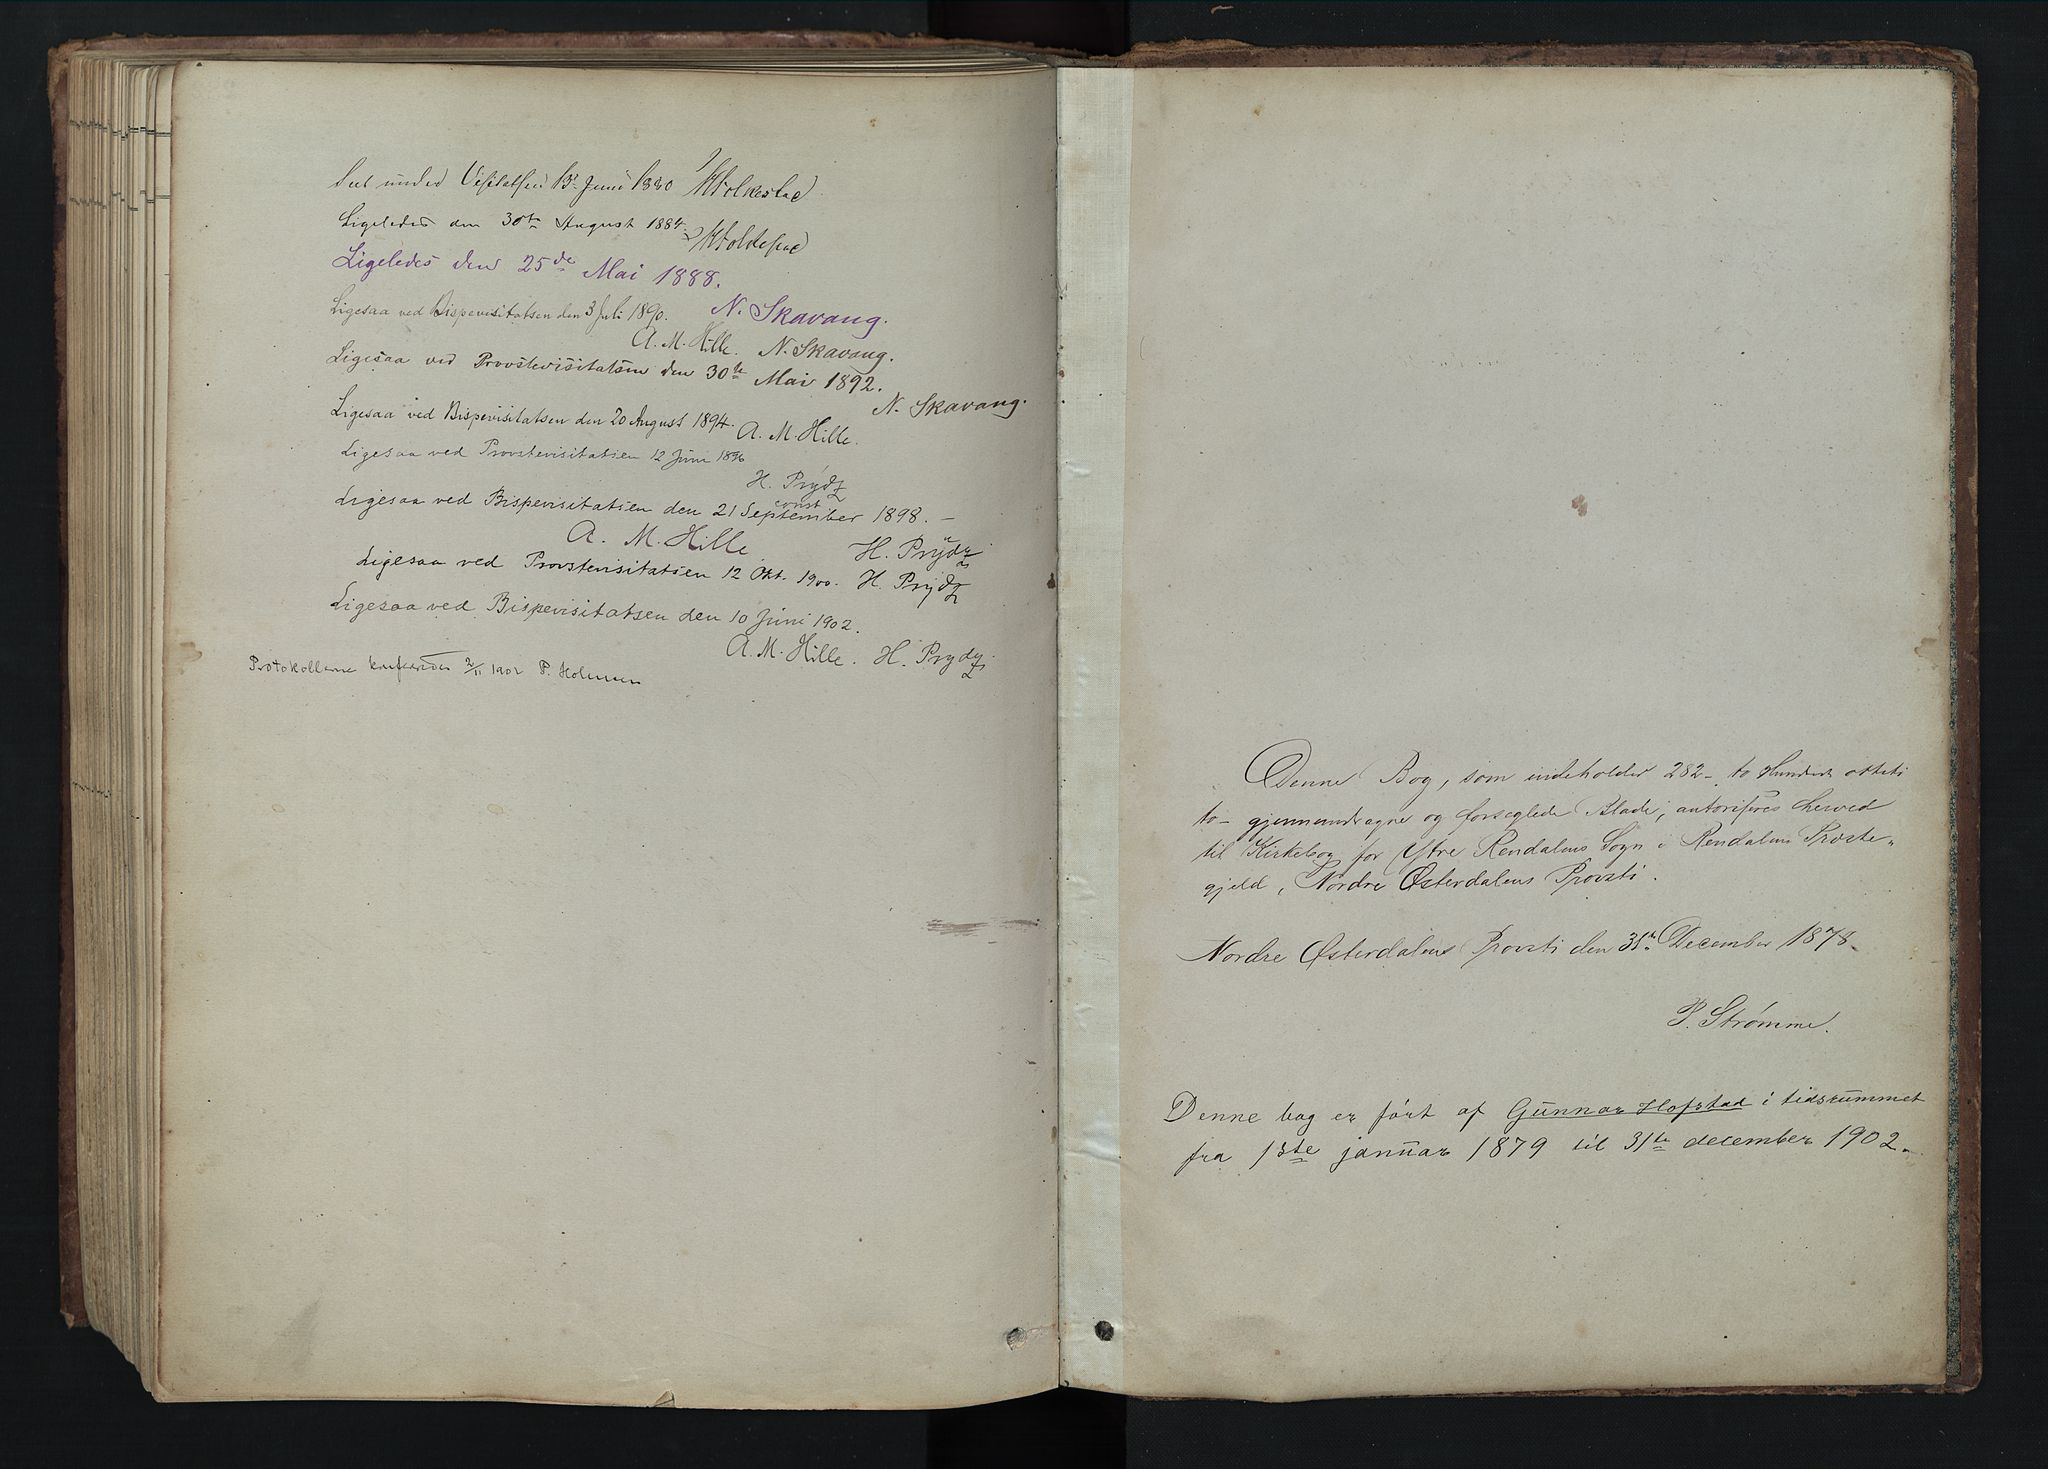 Seet under Visitatsen 13de Juni 1880
Ligeledes den 30te August 1884.
Ligeledes den 25de Mai 1888.
N. Skavang.
Ligesaa ved Bispevisitatsen den 3 Juli 1890.
A. M. Hille. N. Skavang.
Ligesaa ved Provstevisitatsen den 30te Mai 1892.
N. Skavang.
Ligesaa ved Bispevisitatsen den 20 August 1894.
A. M. Hille.
Ligesaa ved Provstevisitatsen 12 Juni 1896
H. Prÿdz
const
Ligesaa ved Bispevisitatsen den 21 September 1898. –
A. M. Hille H. Prÿdz
Ligesaa ved Provstevisitatsen 12 Okt. 1900. H. Prÿdz
Ligesaa ved Bispevisitatsen den 10 Juni 1902.
A. M. Hille. H. Prydz
Protokollerne konfereredes 2/11 1902 P. Holmsen
Denne Bog, som indeholder 282 – to Hundrede otteti
to – gjennemdragne og forseglede Blade, autoriseres herved
til Kirkebog for Ytre Rendalens Sogn i Rendalens Præste-
gjeld, Nordre Østerdalens Provsti.
Nordre Østerdalens Provsti den 31te December 1878.
P. Strømme.
Denne bog er ført af Gunnar Hofstad i tidsrummet
fra 1ste januar 1879 til 31te december 1902.